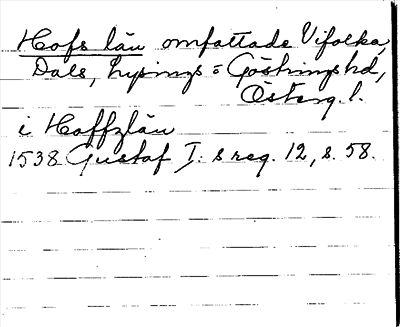 Hofs län omfattade Vifolka,
Dals, Lysings= Göstrings hd,
Österg. l.
i Hoffzlän
1538 Gustaf I:s reg. 12, s. 58.